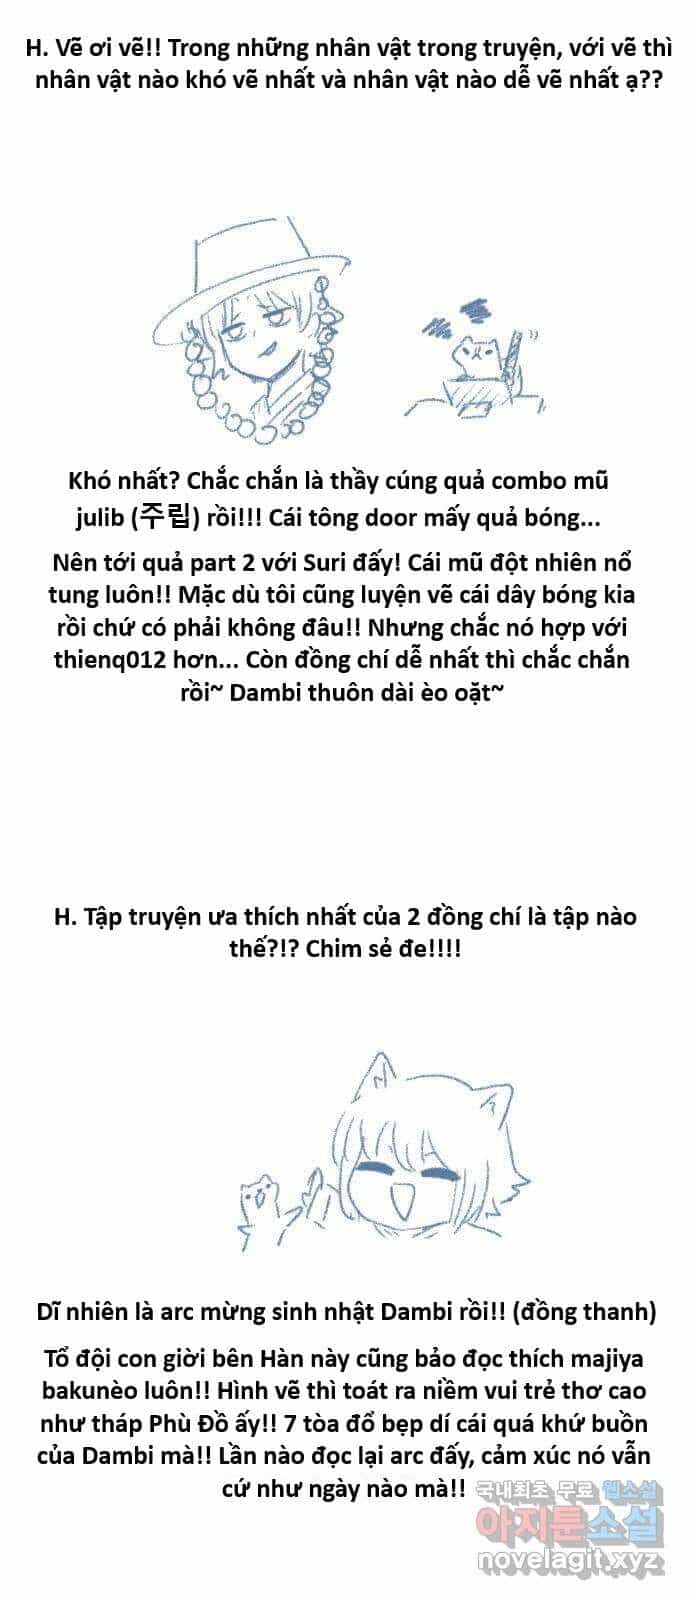 H. Vẽ ơi vẽ!! Trong những nhân vật trong truyện, với vẽ thì
nhân vật nào khó vẽ nhất và nhân vật nào dễ vẽ nhất ạ??
Khó nhất? Chắc chắn là thầy cúng quả combo mũ
julib (주립) rồi!!! Cái tông door mấy quả bóng...
Nên tới quả part 2 với Suri đấy! Cái mũ đột nhiên nổ
tung luôn!! Mặc dù tôi cũng luyện vẽ cái dây bóng kia
rồi chứ có phải không đâu!! Nhưng chắc nó hợp với
thienq012 hơn... Còn đồng chí dễ nhất thì chắc chắn
rồi~ Dambi thuôn dài èo oặt~
H. Tập truyện ưa thích nhất của 2 đồng chí là tập nào
thế?!? Chim sẻ đe!!!!
Dĩ nhiên là arc mừng sinh nhật Dambi rồi!! (đồng thanh)
Tổ đội con giời bên Hàn này cũng bảo đọc thích majiya
bakunèo luôn!! Hình vẽ thì toát ra niềm vui trẻ thơ cao
như tháp Phù Đồ ấy!! 7 tòa đổ bẹp dí cái quá khứ buồn
của Dambi mà!! Lần nào đọc lại arc đấy, cảm xúc nó vẫn
cứ như ngày nào mà!!
국내최초 무료 웹소설
아지툰소설
novelagit.xyz